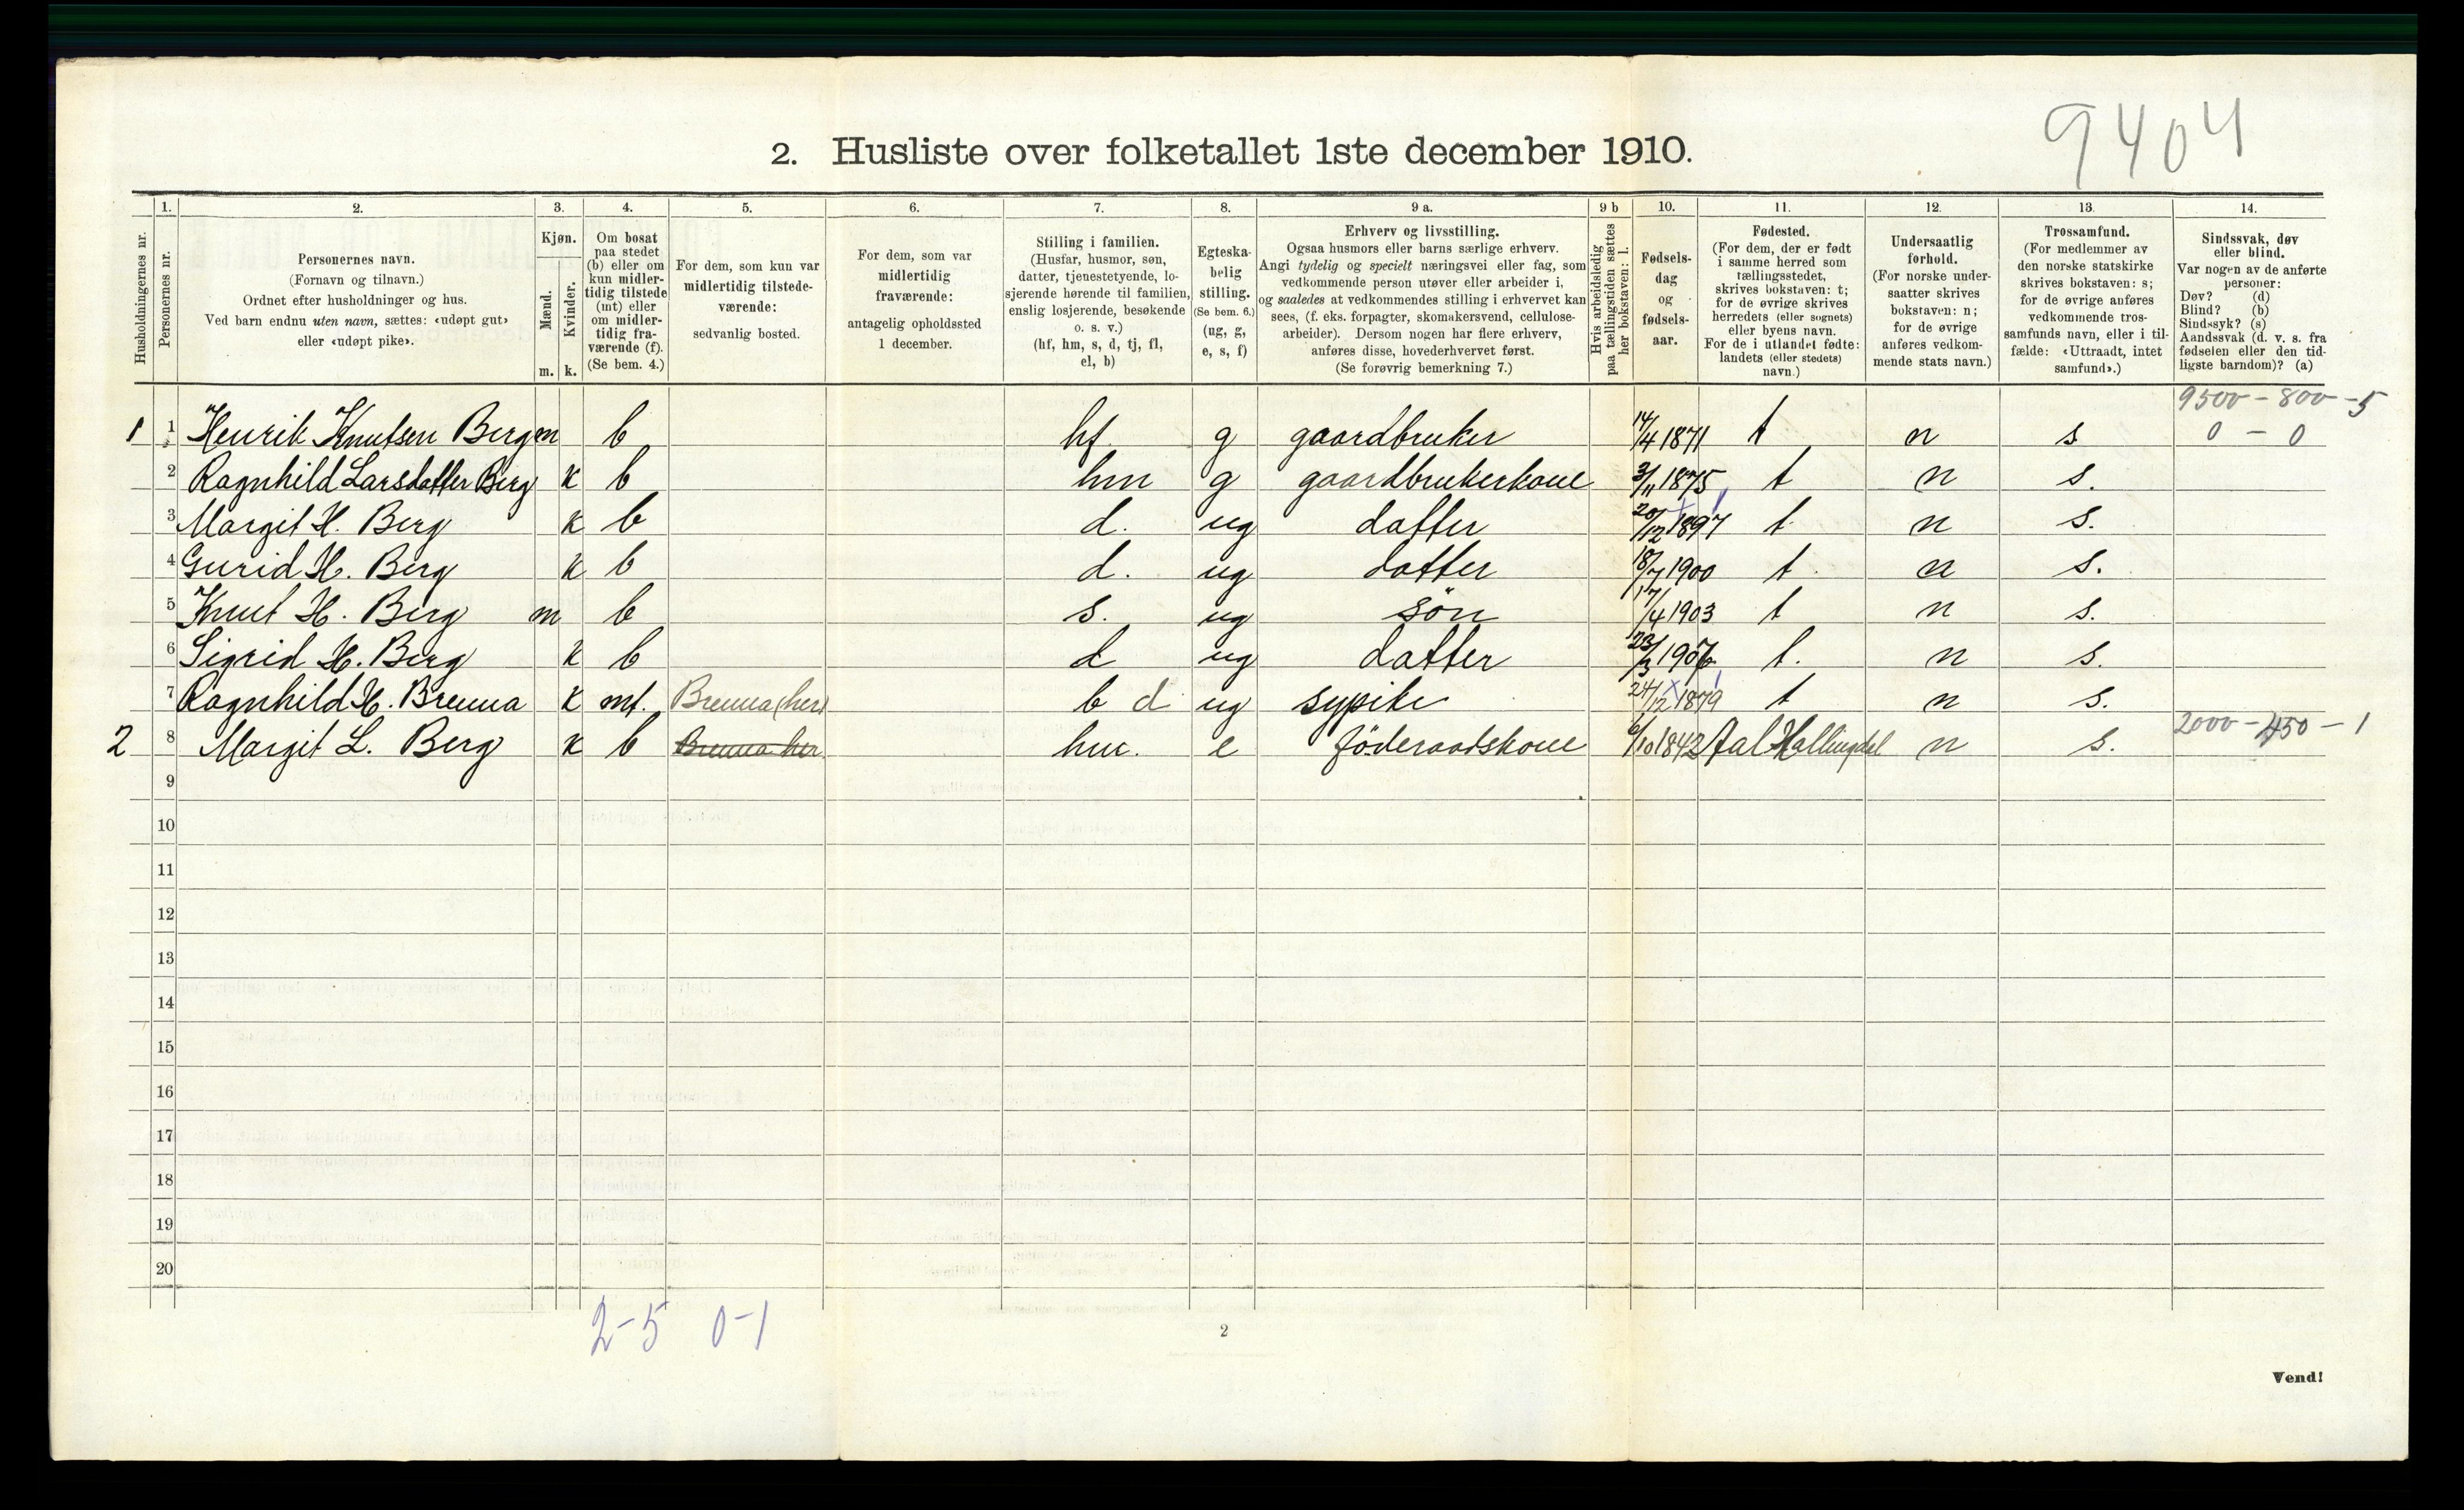 9404
2. Husliste over folketallet 1ste december 1910.
Husholdningernes nr.
1.
Personernes nr.
2.
Personernes navn.
(Fornavn og tilnavn.)
Ordnet efter husholdninger og hus.
Ved barn endnu uten navn, sættes: «udøpt gut»
eller «udøpt pike».
3.
Kjøn.
Mænd.
Kvinder.
m. k.
4.
Om bosat
paa stedet
(b) eller om
kun midler-
tidig tilstede
(mt) eller
om midler-
tidig fra-
værende (f).
(Se bem. 4.)
5.
For dem, som kun var
midlertidig tilstede-
værende:
sedvanlig bosted.
6.
For dem, som var
midlertidig
fraværende:
antagelig opholdssted
1 december.
7.
Stilling i familien.
(Husfar, husmor, søn,
datter, tjenestetyende, lo-
sjerende hørende til familien,
enslig losjerende, besøkende
o. s. v.)
(hf, hm, s, d, tj, fl,
el, b)
8.
Egteska-
belig
stilling.
(Se bem. 6.)
(ug, g,
e, s, f)
9 a.
Erhverv og livsstilling.
Ogsaa husmors eller barns særlige erhverv.
Angi tydelig og specielt næringsvei eller fag, som
vedkommende person utøver eller arbeider i,
og saaledes at vedkommendes stilling i erhvervet kan
sees, (f. eks. forpagter, skomakersvend, cellulose-
arbeider). Dersom nogen har flere erhverv,
anføres disse, hovederhvervet først.
(Se forøvrig bemerkning 7.)
9 b
Hvis arbeidsledig
paa tællingstiden sættes
her bokstaven: l.
10.
Fødsels-
dag
og
fødsels-
aar.
11.
Fødested.
(For dem, der er født
i samme herred som
tællingsstedet,
skrives bokstaven: t;
for de øvrige skrives
herredets (eller sognets)
eller byens navn.
For de i utlandet fødte:
landets (eller stedets)
navn.)
12.
Undersaatlig
forhold.
(For norske under-
saatter skrives
bokstaven: n;
for de øvrige
anføres vedkom-
mende stats navn.)
13.
Trossamfund.
(For medlemmer av
den norske statskirke
skrives bokstaven: s;
for de øvrige anføres
vedkommende tros-
samfunds navn, eller i til-
fælde: «Uttraadt, intet
samfund».)
14.
Sindssvak, døv
eller blind.
Var nogen av de anførte
personer:
Døv? (d)
Blind? (b)
Sindssyk? (s)
Aandssvak (d. v. s. fra
fødselen eller den tid-
ligste barndom)? (a)
9500 - 800 - 5
1 1 Henrik Knutsen Berg m b hf g gaardbruker 14/4 1871 t n s 0 - 0
2 Ragnhild Larsdatter Berg k b hm g gaardbrukerkone 3/11 1875 t n s.
3 Margit H. Berg k b d. ug datter 20/12 1897 t n s.
4 Gurid H. Berg k b d. ug datter 18/7 1900 t. n s.
5 Knut H. Berg m b s. ug sön 17/4 1903 t n s.
6 Sigrid H. Berg k b d ug datter 23/3 1906 t. n s.
7 Ragnhild H. Brenna k mt. Brenna (her) b d ug sypike 24/12 1879 t n s.
2 8 Margit L. Berg k b Brenna her hm. e föderaadskone 6/10 1842 Aal Hallingdal n s. 2000 - 450 - 1
9
10
11
12
13
14
15
16
17
18
19
20
2-5 0-1
2
Vend!